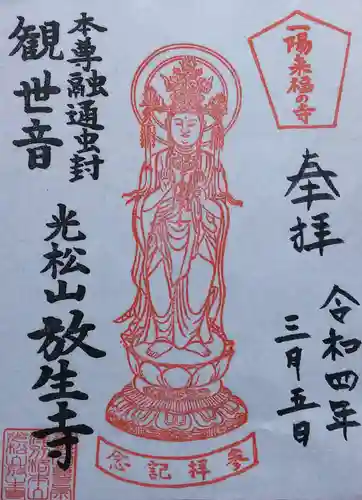 一陽来福の寺
奉拝
令和四年
三月五日
本尊融通虫封
観世音
光松山
放生寺
参拝記念